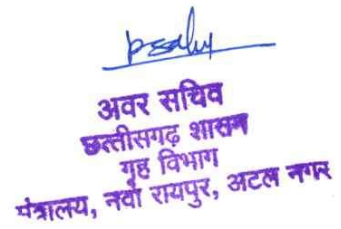 psahu
अवर सचिव
छत्तीसगढ़ शासन
गृह विभाग
मंत्रालय, नवा रायपुर, अटल नगर